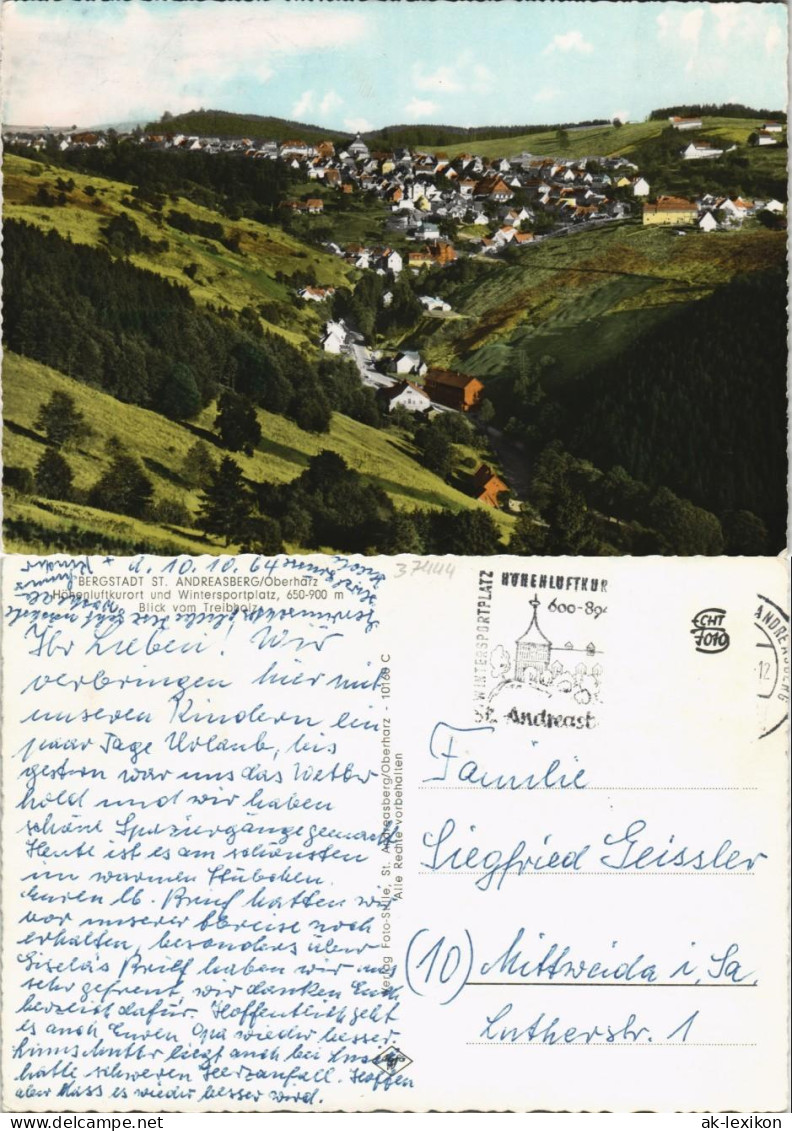 d. 10.10.64
"BERGSTADT ST. ANDREASBERG/Oberharz
Höhenluftkurort und Wintersportplatz, 650-900 m
Blick vom Treibholz
Ihr Lieben! Wir
verbringen hier mit
unseren Kindern ein
paar Tage Urlaub, bis
gestern war uns das Wetter
hold und wir haben
schöne Spaziergänge gemacht
Heute ist es am schönsten
im warmen Stübchen.
Euren lb. Brief hatten wir
vor unserer Abreise noch
erhalten, besonders über
Gisela's Brief haben wir uns
sehr gefreut, wir danken Euch
herzlich dafür. Hoffentlich geht
es auch Euren Opa wieder besser
liegt auch bei
hatte schweren Herzanfall. Hoffen
aber dass es wieder besser wird.
Verlag Foto-Stille, St. Andreasberg/Oberharz - 10168 C
Alle Rechte vorbehalten
37444
WINTERSPORTPLATZ
HÖHENLUFTKUR
600-894
St. Andreasb
ANDREASBERG
12
CHT
7010
Familie
Siegfried Geissler
(10) Mittweida i. Sa.
Lutherstr. 1
ak-lexikon